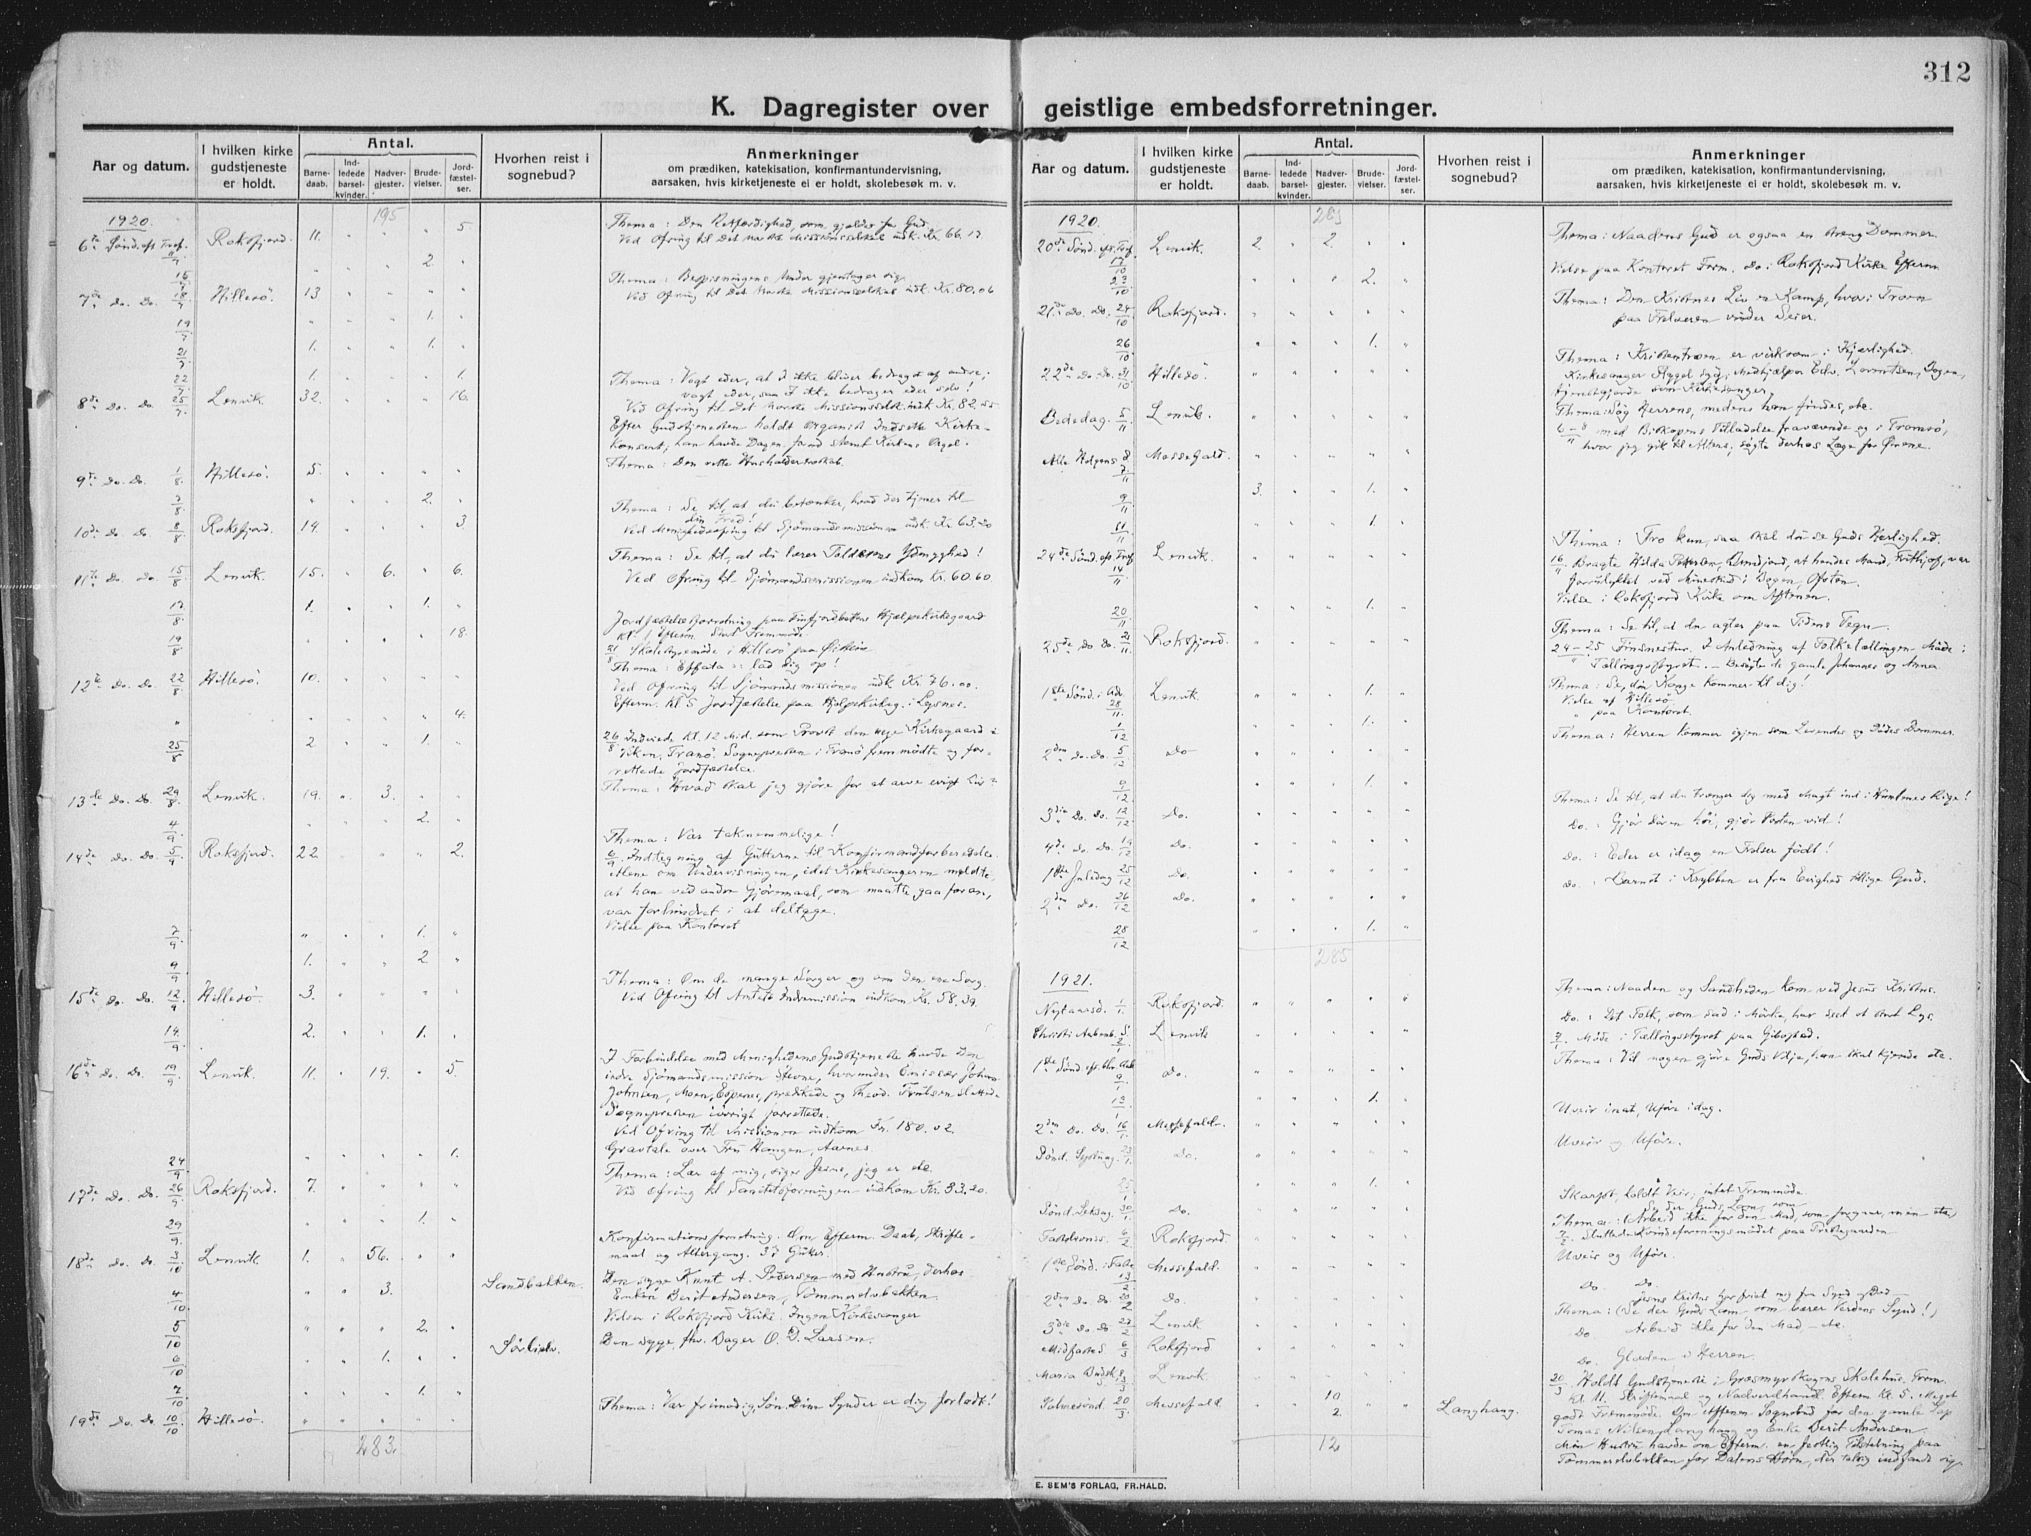 312
K. Dagregister over geistlige embedsforretninger.
Aar og datum.
I hvilken kirke gudstjeneste er holdt.
Antal.
Barnedaab.
Indledede barselkvinder.
Nadvergjester.
Brudevielser.
Jordfæstelser.
Hvorhen reist i sognebud?
Anmerkninger
om prædiken, katekisation, konfirmantundervisning,
aarsaken, hvis kirketjeneste ei er holdt, skolebesøk m. v.
1920. 195
6te Sønd. eft. Tref. 11/7 Roksfjord. 11. 5 Thema: Den Retfærdighed, som gjælder for Gud.
Ved Ofring til Det norske Missionsselskab indk. Kr. 66.17.
16/7 2.
7de Do. Do. 18/7 Hillesø. 13 Thema: Bespisningens Under gjentager sig.
Ved Ofring til Det norske Missionsselskab indk. Kr. 80.06
19/7 1.
21/7 1. 1.
22/7 1. 1.
8de Do. Do. 25/7 Lenvik. 32. 16. Thema: Vogt eder, at I ikke bliver bedraget af andre;
vogt eder, saa I ikke bedrager eder selv!
Ved Ofring til Det norske Missionsselsk. indk. Kr. 82.55
Efter Gudstjenesten holdt Organist Indsette Kirke-
konsert; han havde Dagen forud stemt Kirkens Orgel.
9de Do. Do. 1/8 Hillesø. 5. Thema: Den rette Husholderskab.
7/8 2.
10de Do. Do. 8/8 Roksfjord. 19. 3. Thema: Se til, at du betænker, hvad der tjener til
din Fred!
Ved Menighedsofring til Sjømandsmissionen indk. Kr. 63.20
11te Do. Do. 15/8 Lenvik. 15. 6. 6. Thema: Se til, at du lærer Tolderens Ydmyghed!
Ved Ofring til Sjømandsmissionen indkom Kr. 60.60
17/8 1. 1.
19/8 18. Jordfæstelsesforretning paa Finfjordbotten Hjælpekirkegaard
Kl. 1 Efterm. Stort Fremmøde
21/8 Skolestyremøde i Hillesø
12te Do. Do. 22/8 Hillesø. 10. Thema: Effata: lad dig op!
Ved Ofring til Sjømandsmissionen indk. Kr. 76.00.
Efterm. Kl. 5 Jordfæstelse paa Hjælpekirkeg. i Lysnes.
4.
25/8 2 1. 26/8 Indviede Kl. 12 Mid. som Provst den nye Kirkegaard i
Viken, Tranø. Sognepresten i Tranø fremmødte og for-
rettede Jordfæstelse.
13de Do. Do. 29/8 Lenvik. 19. 3. Thema: Hvad skal jeg gjøre for at arve evigt Liv?
4/9 2.
14de Do. Do. 5/9 Roksfjord. 22. 2. Thema: Vær taknemmelige!
6/9 Indtegning af Gutterne til Konfirmandforberedelse
alene om Undervisningen, idet Kirkesangeren meldte,
at han ved andre Gjøremaal, som maatte gaa foran,
var forhindret i at deltage.
7/9 1. Vielse paa Kontoret
9/9 1. 2
15de Do. Do. 12/9 Hillesø. 3. Thema: Om de mange Sorger og om den ene Sorg.
Ved Ofring til Indremission indkom Kr. 58.39.
14/9 2. 1.
16de Do. Do. 19/9 Lenvik. 11. 19. 5. I Forbindelse med Menighedens Gudstjeneste havde Den
indre Sjømandsmission Stevne, hvorunder Emissær Johan
Johnsen, Moen, Espenes, prædikede og Theod.
Sognepresten iøvrigt forrettede.
Ved Ofring til Missionen indkom Kr. 180.02.
24/9 1. Gravtale over Fru Haugen, Aarnes
17de Do. Do. 26/9 Roksfjord. 7. Thema: Lær af mig, siger Jesus, jeg er etc.
Ved Ofring til Sanitetsforeningen indkom Kr. 33.20.
29/9 1.
18de Do. Do. 3/10 Lenvik. 1. 56. Konfirmationsforretning. Om Efterm. Daab, Skrifte-
maal og Altergang. 37 Gutter.
4/10 3. Sandbakken. Den syge Knut A. Pedersen med Hustru, derhos
Enken Berit Andersen, Tømmerelvbakken.
5/10 2. Vielser i Roksfjord Kirke. Ingen Kirkesanger
6/10 1. Sørlielv. Den syge fhv. Bager O. D. Larsen.
7/10 1.
19de Do. Do. 10/10 Hillesø. Thema: Vær frimodig, Søn. Dine Synder er dig forladt!
283.
Aar og datum.
I hvilken kirke gudstjeneste er holdt.
Antal.
Barnedaab.
Indledede barselkvinder.
Nadvergjester.
Brudevielser.
Jordfæstelser.
Hvorhen reist i sognebud?
Anmerkninger
om prædiken, katekisation, konfirmantundervisning,
aarsaken, hvis kirketjeneste ei er holdt, skolebesøk m. v.
1920. 283
20de Sønd. eft. Tref. 17/10 Lenvik. 2. 2. Thema: Naadens Gud er ogsaa en streng Dommer.
23/10 2. Vielse paa Kontoret Form. Do. i Roksfjord Kirke Efterm.
21de Do. Do. 24/10 Roksfjord. Thema: Den Kristnes Liv en Kamp, hvori Troen
paa Frelseren vinder Seier.
26/10 1.
22de Do. Do. 31/10 Hillesø. Thema: Kristentroen er virksom i Kjærlighed.
Kirkesanger Rygel syg; Medhjælper Edv. Lorentsen, Dagen,
tjenestgjorde som Kirkesanger.
Bededag. 5/11 Lenvik. Thema: Søg Herrens, medens han findes, etc.
6-8/11 med Biskopens Tilladelse fraværende og i Tromsø,
hvor jeg gik til Alters; søgte derhos Læge for Ørene.
Alle Helgens 7/11 Messefald.
9/11 3. 1.
11/11 1.
24de Sønd. eft. Tref. 14/11 Lenvik. Thema: Tro kun, saa skal du se Guds Herlighed.
16/11 Bragte Hilda Pettersen, at hendes Mand, Frithjof, var
forulykket ved Mineskud i Bogen, Ofoten.
20/11 1. Vielse i Roksfjord Kirke om Aftenen.
25de Do. Do. 21/11 Roksfjord. Thema: Se til, at du agter paa Tidens Tegn.
24-25/11 Finsnestur. I Anledning af Folketællingen Møde i
Tællingsstyret. - Besøgte de gamle Johannes og Anna
1ste Sønd. i Adv. 28/11 Lenvik 1. Thema: Se, din Konge kommer til dig!
Vielse af Hillesø
1/12 1. " paa Kontoret.
2den Do. Do. 5/12 Do Thema: Herren kommer igjen som Levendes og Dødes Dommer.
9/12 1.
3die Do. Do. 12/12 Do. Thema: Se til, at du trænger dig med Magt ind i Himlenes Rige!
4de Do. Do. 19/12 Do. Do.: Gjør Døren høi, gjør Porten vid!
1ste Juledag 25/12 Do. Do.: Eder er idag en Frelser født!
2den Do. 26/12 Do. Do.: Barnet i Krybben er fra Evighed tillige Gud.
28/12 1.
285
1921.
Nytaarsd. 1/1 Roksfjord. Thema: Naaden og Sandheden kom ved Jesus Kristus.
Christi Aabenb. 2/1 Lenvik Do.: Det Folk, som sad i Mørke, har seet et stort Lys.
7/1 Møde i Tællingsstyret paa Gibostad.
1ste Sønd. eft. Chr. Aab. 9/1 Do. Thema: Vil nogen gjøre Guds Vilje, han skal kjende etc.
13/1 1.
2den Do. Do. 16/1 Messefald. Uveir inat, Uføre idag.
Sønd. Septuag. 23/1 Do. Uveir og Uføre.
25/1 1.
Sønd. Seksag. 30/1 Do. Skarpt, koldt Veir, intet Fremmøde
Fastelavns. 6/2 Roksfjord. Thema: Arbeid ikke for den Mad, som forgaar, men etc.
Se der Guds Lam, som
1ste Sønd. i Faste 13/2 Messefald. Uveir og Uføre.
2den Do. Do. 20/2 Do. Do. Do.
Jesus Kristus har friet mig fra Synd og Død
3die Do. Do. 27/2 Lenvik Thema: (Se der Guds Lam som bærer Verdens Synd!)
Midfastes. 6/3 Roksfjord Do. Arbeid ikke for den Mad - etc.
Maria Budsk. 13/3 Lenvik Do. Glæden i Herren.
Palmesønd. 20/3 Messefald. 10 20/3 Holdt Gudstjeneste i Grasmyrskogens Skolehus. Form.
Kl. 11. Skriftemaal og Nadverdhandl. Efterm. Kl. 5. Meget
2 Langhaug. godt Fremmøde. Om Aftenen Sognebud for den gamle Lap
Tomas Nilsen, Langhaug og Enke Berit Andersen.
12 Min Hustru havde om Efterm. en festlig Tilstelning paa
Tømmerelvbakken for Dalens Børn, der talrig indfandt sig.
E. SEM'S FORLAG, FR.HALD.